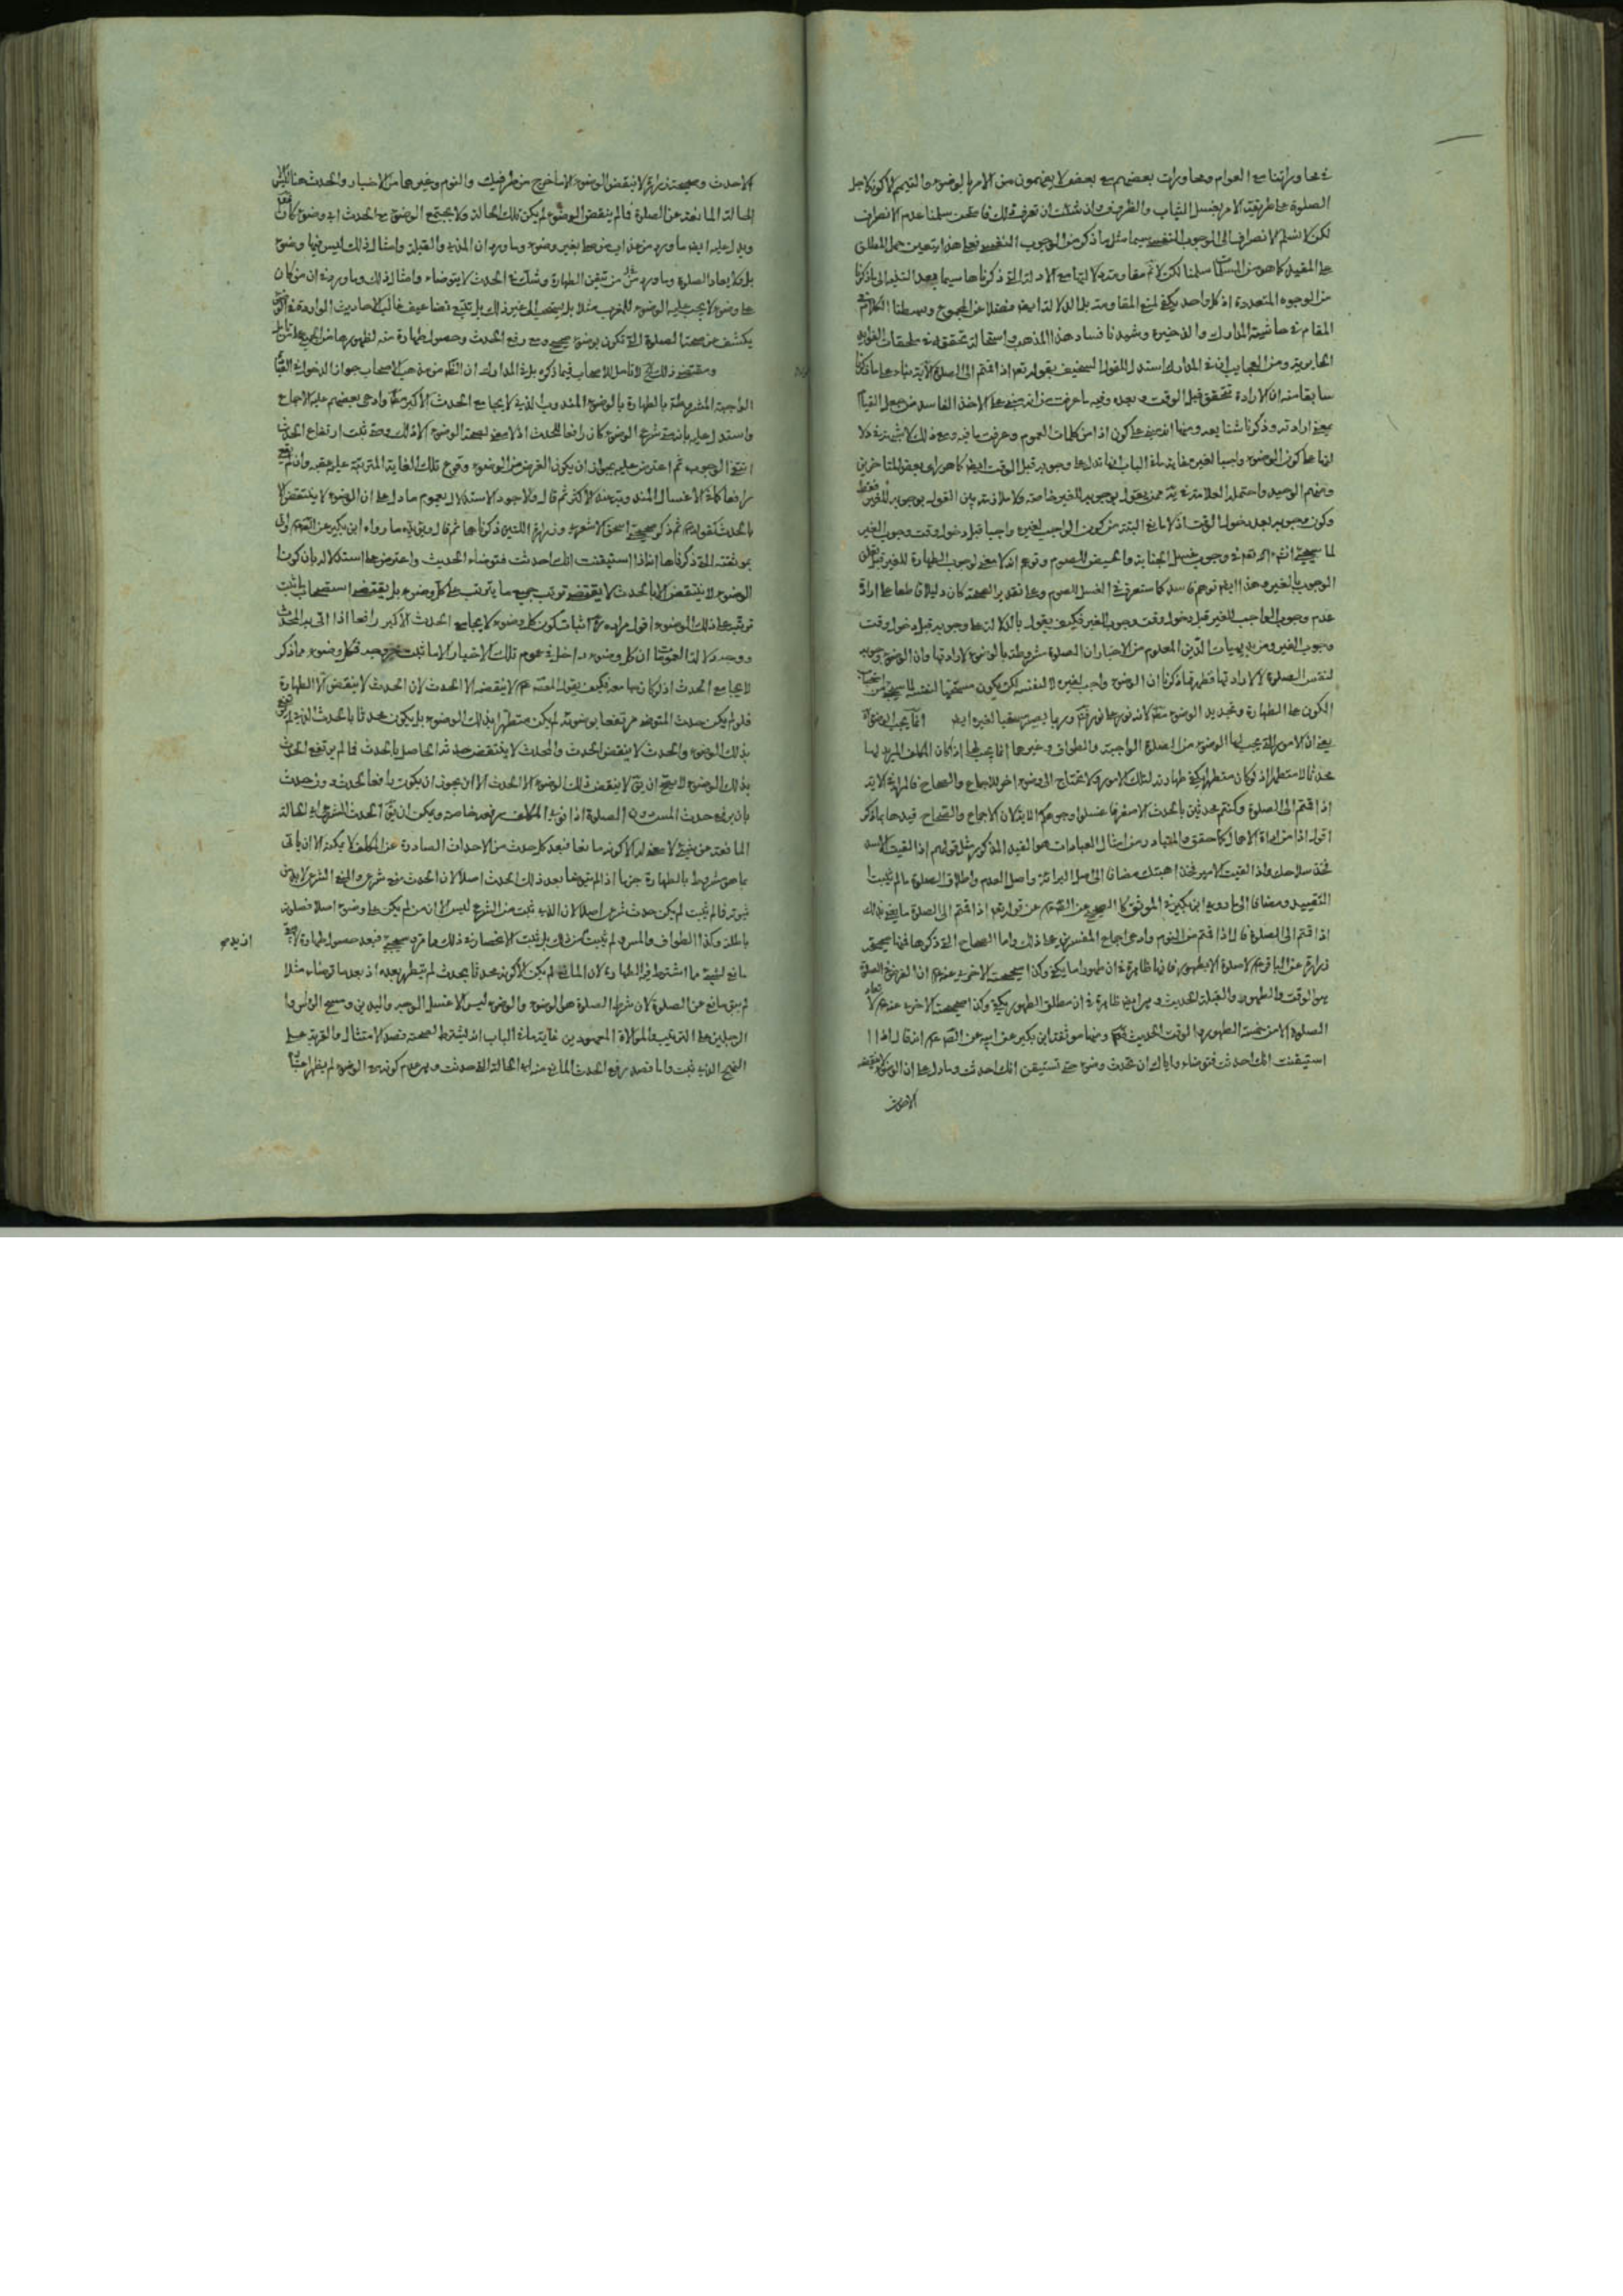 في محاوراتنا مع العوام ومحاورات بعضهم مع بعض لا يفهمون من الامر بالوضوء والتيمم الا كونه لاجل
الصلوة على طريقة الامر بغسل الثياب والظروف وان شئت ان تعرف ذلك سلمنا عدم الانصراف
لكن لا نسلم الانصراف الى الوجوب النفسي سيما مثل ما ذكر من الوجوب النفسي فعلى هذا يتعين حمل المطلق
على المقيد كما هو من المسلمات سلمنا لكن لا تم مقاومته لا لتها مع الادلة التي ذكرناها سيما بعد التنبه الى ما ذكرنا
من الوجوه المتعددة اذ كل واحد يكفي لمنع المقاومة بل الدلالة ايضا فضلا عن المجموع وبسطنا الكلام في
المقام في حاشية المدارك والذخيرة وشيدنا فساد هذا المذهب واستحالة تحققه في ملحقات الفوايد
الحايرية ومن العجايب ان في المدارك استدل للقول السخيف بقوله تعم اذا قمتم الى الصلوة الآية بناء على ما ذكرنا
سابقا منه ان الارادة تتحقق قبل الوقت وبعده وفيه ما عرفت من انه مبني على الاخذ الفاسد من جعل القيام
بمعنى ارادته وذكرنا شنايعه ومنها انه مبني على كون اذا من كلمات العموم وعرفت ما فيه ومع ذلك لا شبهة في دلا
لتها على كون الوضوء واجبا لغيره غاية ما في الباب انها تدل على وجوبه قبل الوقت ايضا كما هو راى بعض المتاخرين
ومنهم الوحيد واحتمله العلامة في يه ممن يقول بوجوبه للغير خاصة ولا ملازمة بين القول بوجوبه للغير فقط
وكون وجوبه بعد دخول الوقت اذ لا مانع البتة من كون الواجب لغيره واجبا قبل دخول وقت وجوب الغير
لما سيجئ انشاء الله تعم في وجوب غسل الجنابة والحيض للصوم وتوهم ان لا معنى لوجوب الطهارة للغير قبل تعلق
الوجوب بالغير وهذا ايضا توهم فاسد كما ستعرف في الغسل للصوم وعلى تقدير الصحة كان دليلا قاطعا على ارادة
عدم وجوب الواجب للغير قبل دخول وقت وجوب الغير فكيف يقول بالدلالة على وجوبه قبل دخول وقت
وجوب الغير ومن بديهيات الدين المعلوم من الاخبار ان الصلوة مشروطة بالوضوء لا ارادتها وان الوضوء وجوبه
لنفس الصلوة لا لارادتها فظهر مما ذكرنا ان الوضوء واجب لغيره لا لنفسه لكن يكون مستحبا لنفسه لما سيجئ من استحباب
الكون على الطهارة وتجديد الوضوء لانه نور على نور وربما يصير مستحبا لغيره ايضا انما يجب الوضوء
يعني ان الامور التي يجب لها الوضوء من الصلوة الواجبة والطواف وغيرها انما يجب لها اذا كان المكلف المريد لها
محدثا لا متطهرا اذ لو كان متطهرا يكفي طهارته لتلك الامور ولا يحتاج الى وضوء اخر للاجماع والصحاح فالمراد في الاية
اذا قمتم الى الصلوة وكنتم محدثين بالحدث الاصغر فاغسلوا وجوهكم الاية لان الاجماع والصحاح قيدها بما ذكر
اقول اذا من اداة الاهمال كما حقق والمتبادر من امثال العبادات هو القيد المذكور مثل قولهم اذا لقيت الاسد
فخذ سلاحك واذا لقيت الامير فخذ اهبتك مضافا الى اصل البرائة واصل العدم واطلاق الصلوة ما لم يثبت
التقييد ومضافا الى ما رويه ابن بكير في الموثق كا الصحيح عن الصادق عم عن قوله تعم اذا قمتم الى الصلوة ما يعني بذلك
اذا قمتم الى الصلوة قال اذا قمتم من النوم وادعى اجماع المفسرين على ذلك واما الصحاح التي ذكرها فمنها صحيحة
زرارة عن الباقر عم لا صلوة الا بطهور فانها ظاهرة في ان طهورا ما يكفي وكذا صحيحته الاخرى عنه عم ان الفرض في الصلوة
الوقت والطهور والقبلة الحديث وهو ايضا ظاهرة في ان مطلق الطهور يكفي وكذا صحيحته الاخرى عنه عم لا تعاد
الصلوة الا من خمسة الطهور والوقت الحديث ومنها موثقة ابن بكير عن ابيه عن الصادق عم انه قال اذا
استيقنت انك احدثت فتوضاء واياك ان تحدث وضوء حتى تستيقن انك احدثت وما دل على ان الوضوء لا ينقضه
الا حدث
الاحدث وصحيحة زرارة لا ينقض الوضوء الا ما خرج من طرفيك والنوم وغيرها من الاخبار والحدث هنا ليس الا
الحالة المانعة عن الصلوة فما لم ينقض الوضوء لم يكن تلك الحالة ولا يجتمع الوضوء مع الحدث اى وضوء كان
ويدل عليه ايضا ما ورد من عذاب من صلى بغير وضوء وما ورد ان المذي والقبلة وامثال ذلك ليس فيها وضوء
بل ولا يعاد الصلوة وما ورد من من تيقن الطهارة وشك في الحدث لا يتوضاء وامثال ذلك وما ورد في ان من كان
على وضوء لا يجب عليه الوضوء للمغرب مثلا بل يستحب الى غير ذلك بل تتبع تضاعيف غالب الاحاديث الواردة في الوضوء
يكشف عن صحة الصلوة التي تكون بوضوء صحيح ومع رفع الحدث وحصول طهارة منه
ومقتضى ذلك الاصحاب فيما ذكره بل في المدارك ان الظاهر من مذهب الاصحاب جواز الدخول في العبادة
الواجبة المشروطة بالطهارة بالوضوء المندوب الذي لا يجامع الحدث الاكبر مطلقا وادعى بعضهم عليه الاجماع
واستدل عليه بانه متى شرع الوضوء كان رافعا للحدث اذ لا معنى لصحة الوضوء الا ذلك ومتى ثبت ارتفاع الحدث
انتفى الوجوب ثم اعترض عليه بجواز ان يكون الغرض من الوضوء وقوع تلك الغاية المترتبة عليه عقيبه وان لم يقع
رافعا كما في الاغسال المندوبة عند الاكثر ثم قال والاجود الاستدلال بعموم ما دل على ان الوضوء لا ينتقض الا
بالحدث كقوله عم ثم ذكر صحيحة اسحق الاشعري وزرارة اللتين ذكرناها ثم قال ويؤيده ما رواه ابن بكير عن ابيه
موثقته التي ذكرناها اذا استيقنت انك احدثت فتوضاء الحديث واعترض على استدلاله بان كون
الوضوء لا ينتقض الا بالحدث لا يقتضي ترتب جميع ما يترتب على كل وضوء بل يقتضي استصحاب ما ثبت
ترتبه على ذلك الوضوء اقول مراده ره اثبات كون كل وضوء لا يجامع الحدث الاكبر رافعا اذا اتى به المحدث
ووجه دلالة العمومات ان كل وضوء داخل في عموم تلك الاخبار الا ما ثبت خروجه فكل وضوء ما ذكر
لا يجامع الحدث اذ لو كان يجامعه فكيف يقول المعصوم عم لا ينقضه الا الحدث لان الحدث لا ينقض الا الطهارة
فلو لم يكن حدث المتوضى مرتفعا بوضوئه لم يكن متطهرا بذلك الوضوء بل يكون محدثا بالحدث الذي لم يرتفع
بذلك الوضوء والحدث لا ينقض الحدث والمحدث لا ينتقض حدثه الحاصل بالحدث فما لم يرتفع الحدث
بذلك الوضوء لا يصح ان يق لا ينقض ذلك الوضوء الا الحدث الا ان يجوز ان يكون رافعا لحدث دون حدث
بان يرفع حدث المس دون الصلوة اذا نوى المكلف رفعه خاصة ويمكن ان يق الحدث الشرعي هو الحالة
المانعة عن شئ لا معنى له الا كونه مانعا فبعد كل حدث من الاحداث الصادرة عن المكلف لا يمكنه الا ان ياتى
بما هو مشروط بالطهارة جزما اذا لم يتوضا بعد ذلك الحدث اصلا لان الحدث منع شرعي والمنع الشرعي لا بد من
ثبوته فما لم يثبت لم يكن حدث شرعي اصلا لان الذي ثبت من الشرع ليس الا ان من لم يكن على وضوء اصلا فصلوته
باطلة وكذا الطواف والمس ولم يثبت ازيد من ذلك بل ثبت الانحصار في ذلك وما مر وسيجئ فبعد حصول طهارة لا يبقى
مانع لشئ مما اشترط فيه الطهارة لان المانع لم يكن الا كونه محدثا بحدث لم يتطهر بعده اذ بعد ما توضاء مثلا
لم يبق مانع من الصلوة لان شرط الصلوة هو الوضوء والوضوء ليس الا غسل الوجه واليدين ومسح الراس و
الرجلين على الترتيب والموالاة المعهودين غاية ما في الباب انه يشترط لصحته قصد الامتثال والقربة على
النهج الذي ثبت واما قصد رفع الحدث المانع منه اى الحالة التي حدثت وهو عدم كونه على الوضوء لم يظهر اعتباره